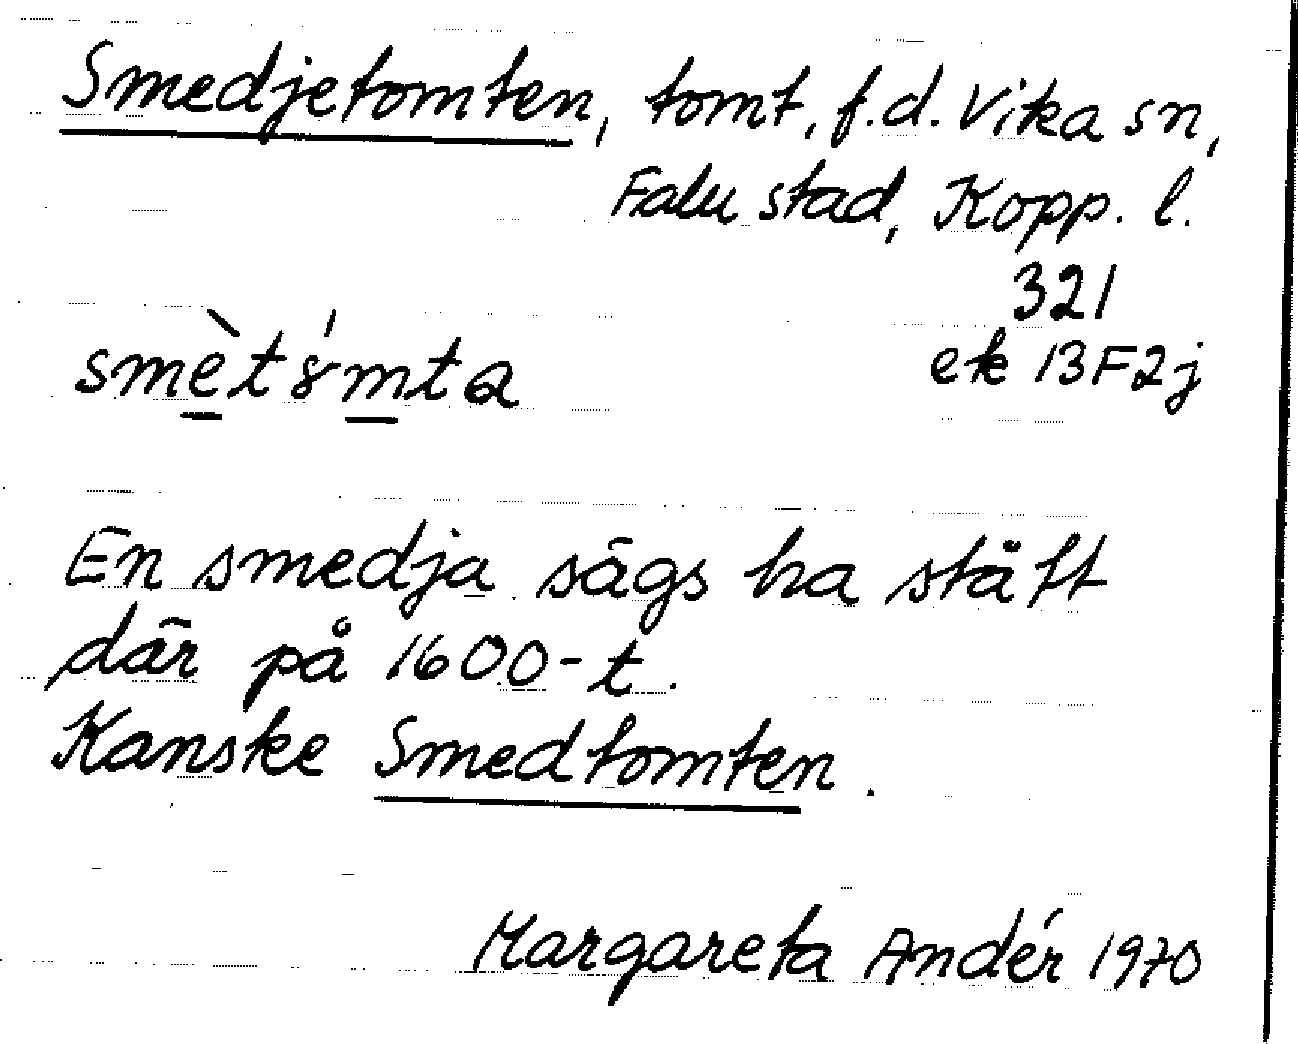 Smedjetomten, tomt, f.d. Vika sn,
Falu stad, Kopp. l.
321
ek 13F2j
En smedja sägs ha stått
där på 1600-t.
Kanske Smedtomten.
Margareta Andér 1970